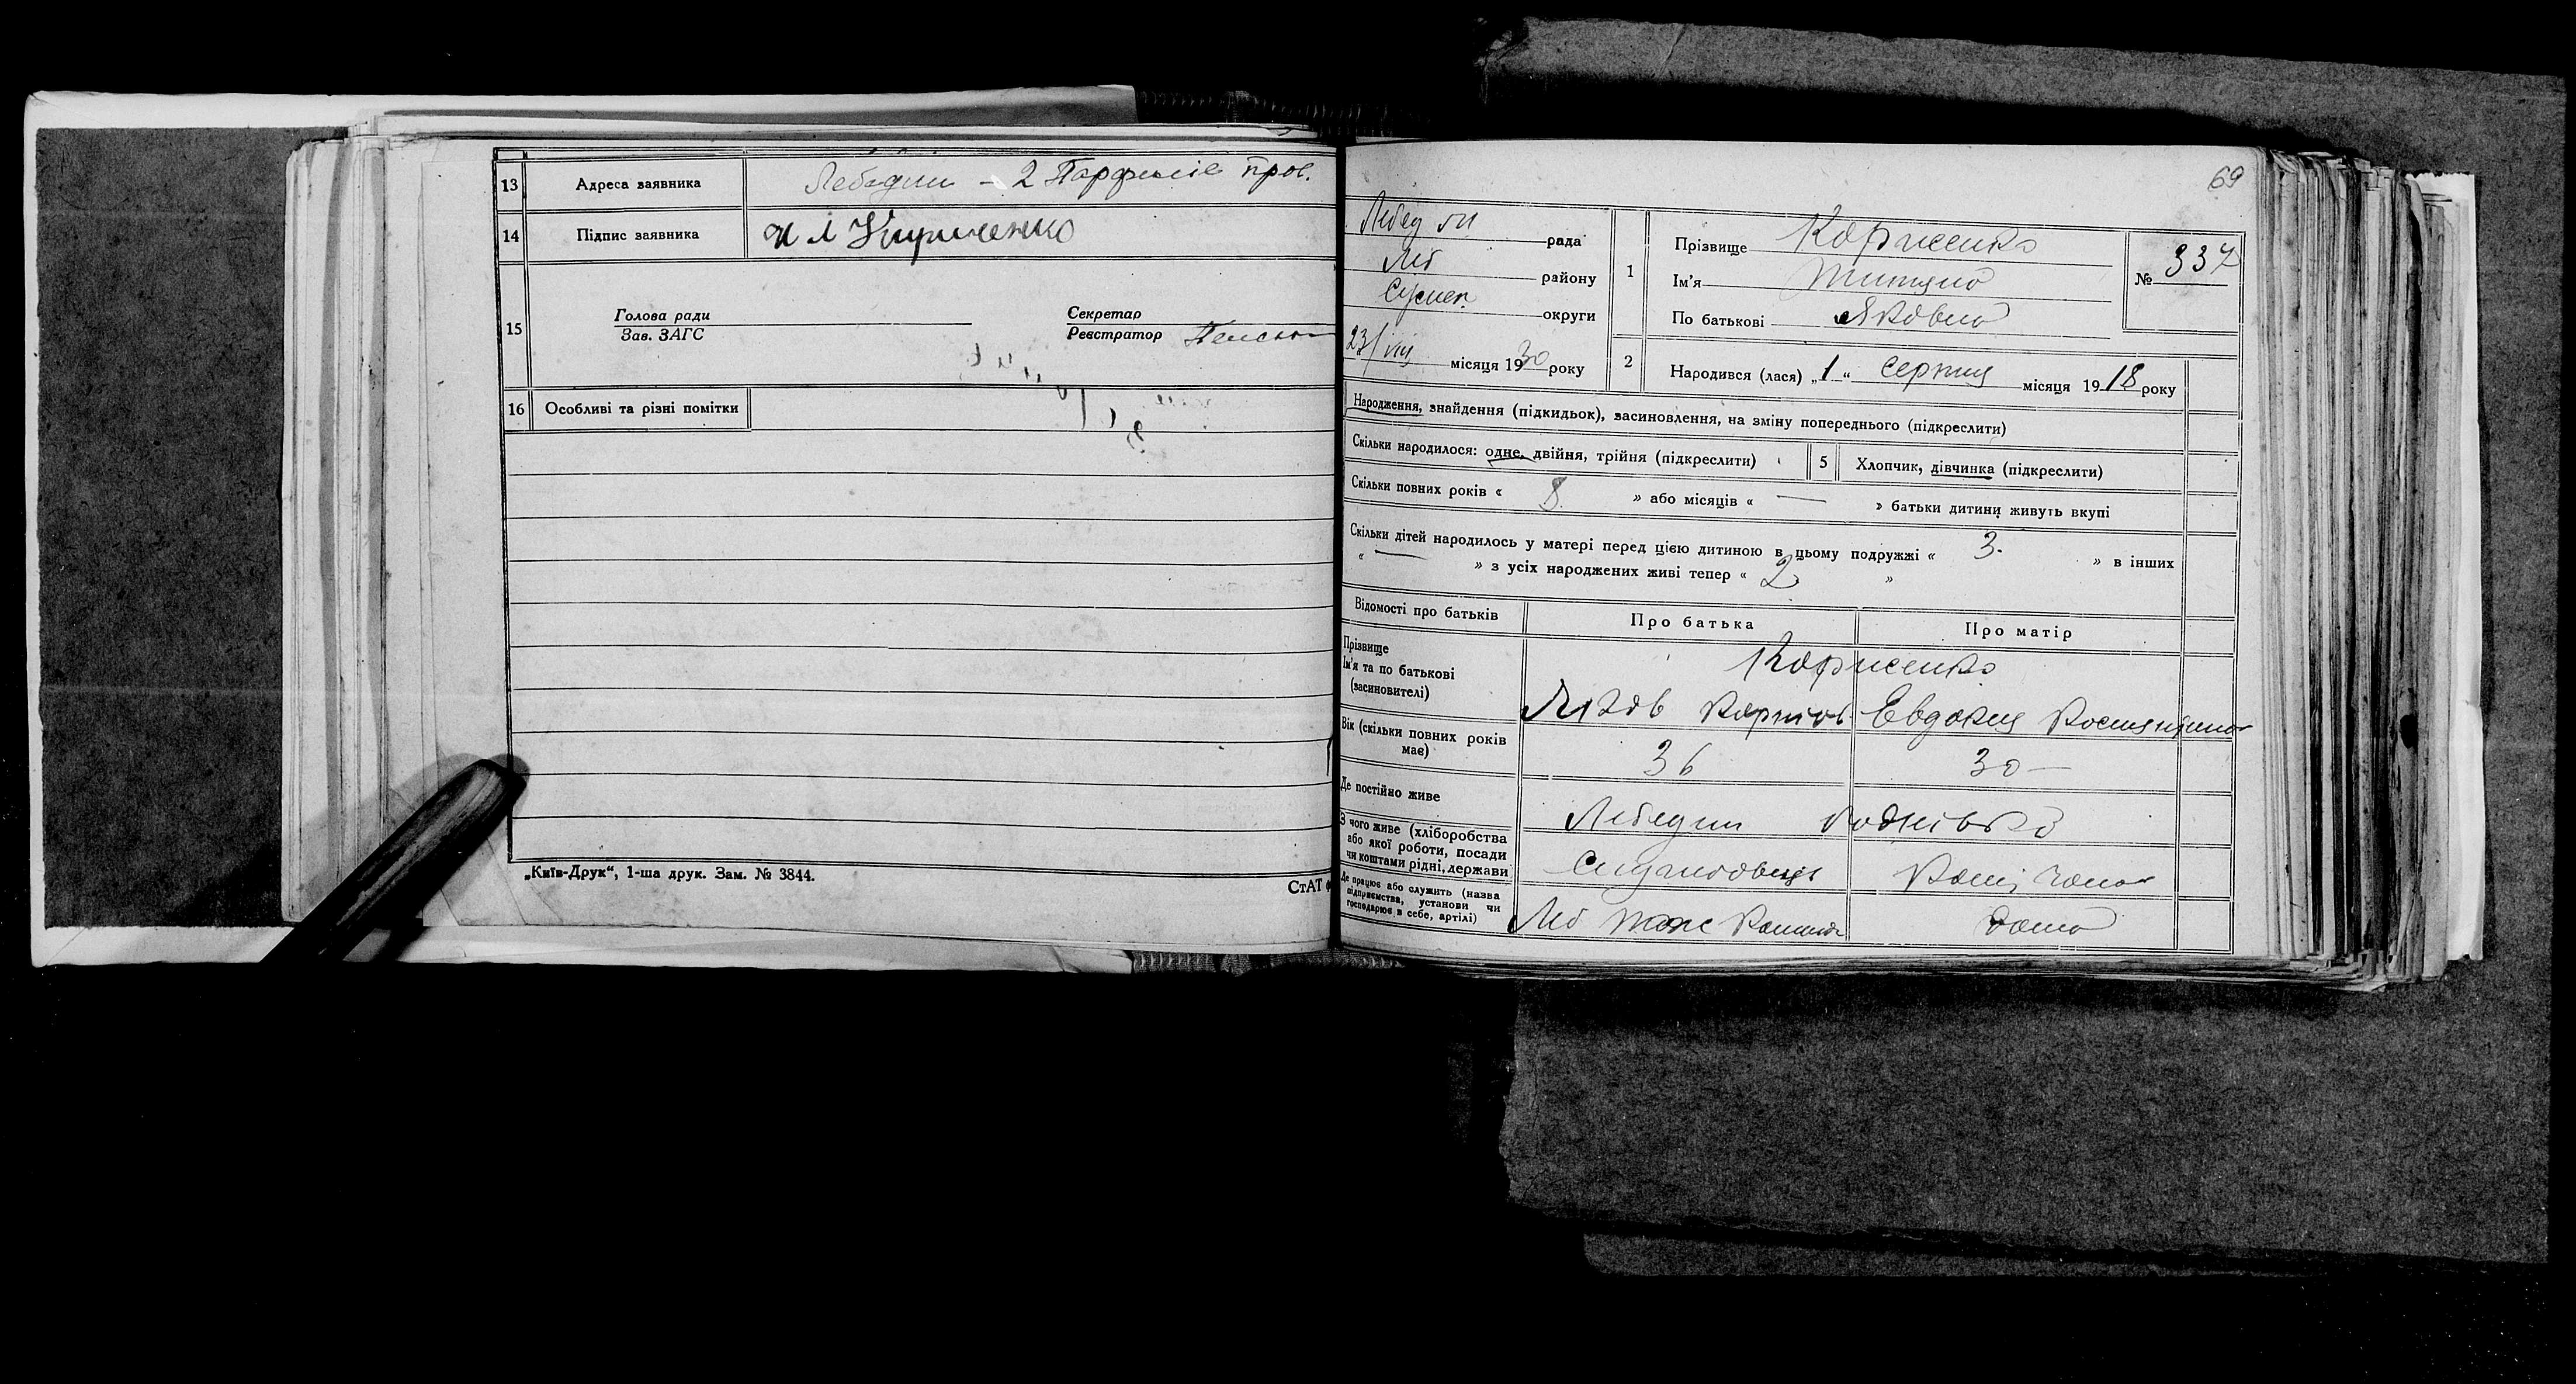 13 Адреса заявника Лебедин – 2 Парфилів пров.
14 Підпис заявника Кириченко
15 Голова ради Секретар
Зав. ЗАГС Реєстратор
16 Особливі та різні помітки
„Київ-Друк“, 1-ша друк. Зам. № 3844.
СтАТ ф
69
Лебед рада
Леб району
Сумск округи
23/VIII місяця 1930 року
1 Прізвище
Ім'я Титяна
По батькові Яковна
№ 337
2 Народився (лася) „1“ серпня місяця 1918 року
Народження, знайдення (підкидьок), засиновлення, на зміну попереднього (підкреслити)
Скільки народилося: одне, двійня, трійня (підкреслити) 5 Хлопчик, дівчинка (підкреслити)
Скільки повних років « 8 » або місяців « — » батьки дитини живуть вкупі
Скільки дітей народилось у матері перед цією дитиною в цьому подружжі « 3. » в інших
« — » з усіх народжених живі тепер « 2 »
Відомості про батьків Про батька Про матір
Прізвище
Ім'я та по батькові
(засиновителі)
Яков Карпов Евдокия
Вік (скільки повних років
має)
36 30 —
Де постійно живе
Лебедин
З чого живе (хліборобства
або якої роботи, посади
чи коштами рідні, держави
Де працює або служить (назва
підприємства, установи чи
господарює в себе, артілі)
Леб дома